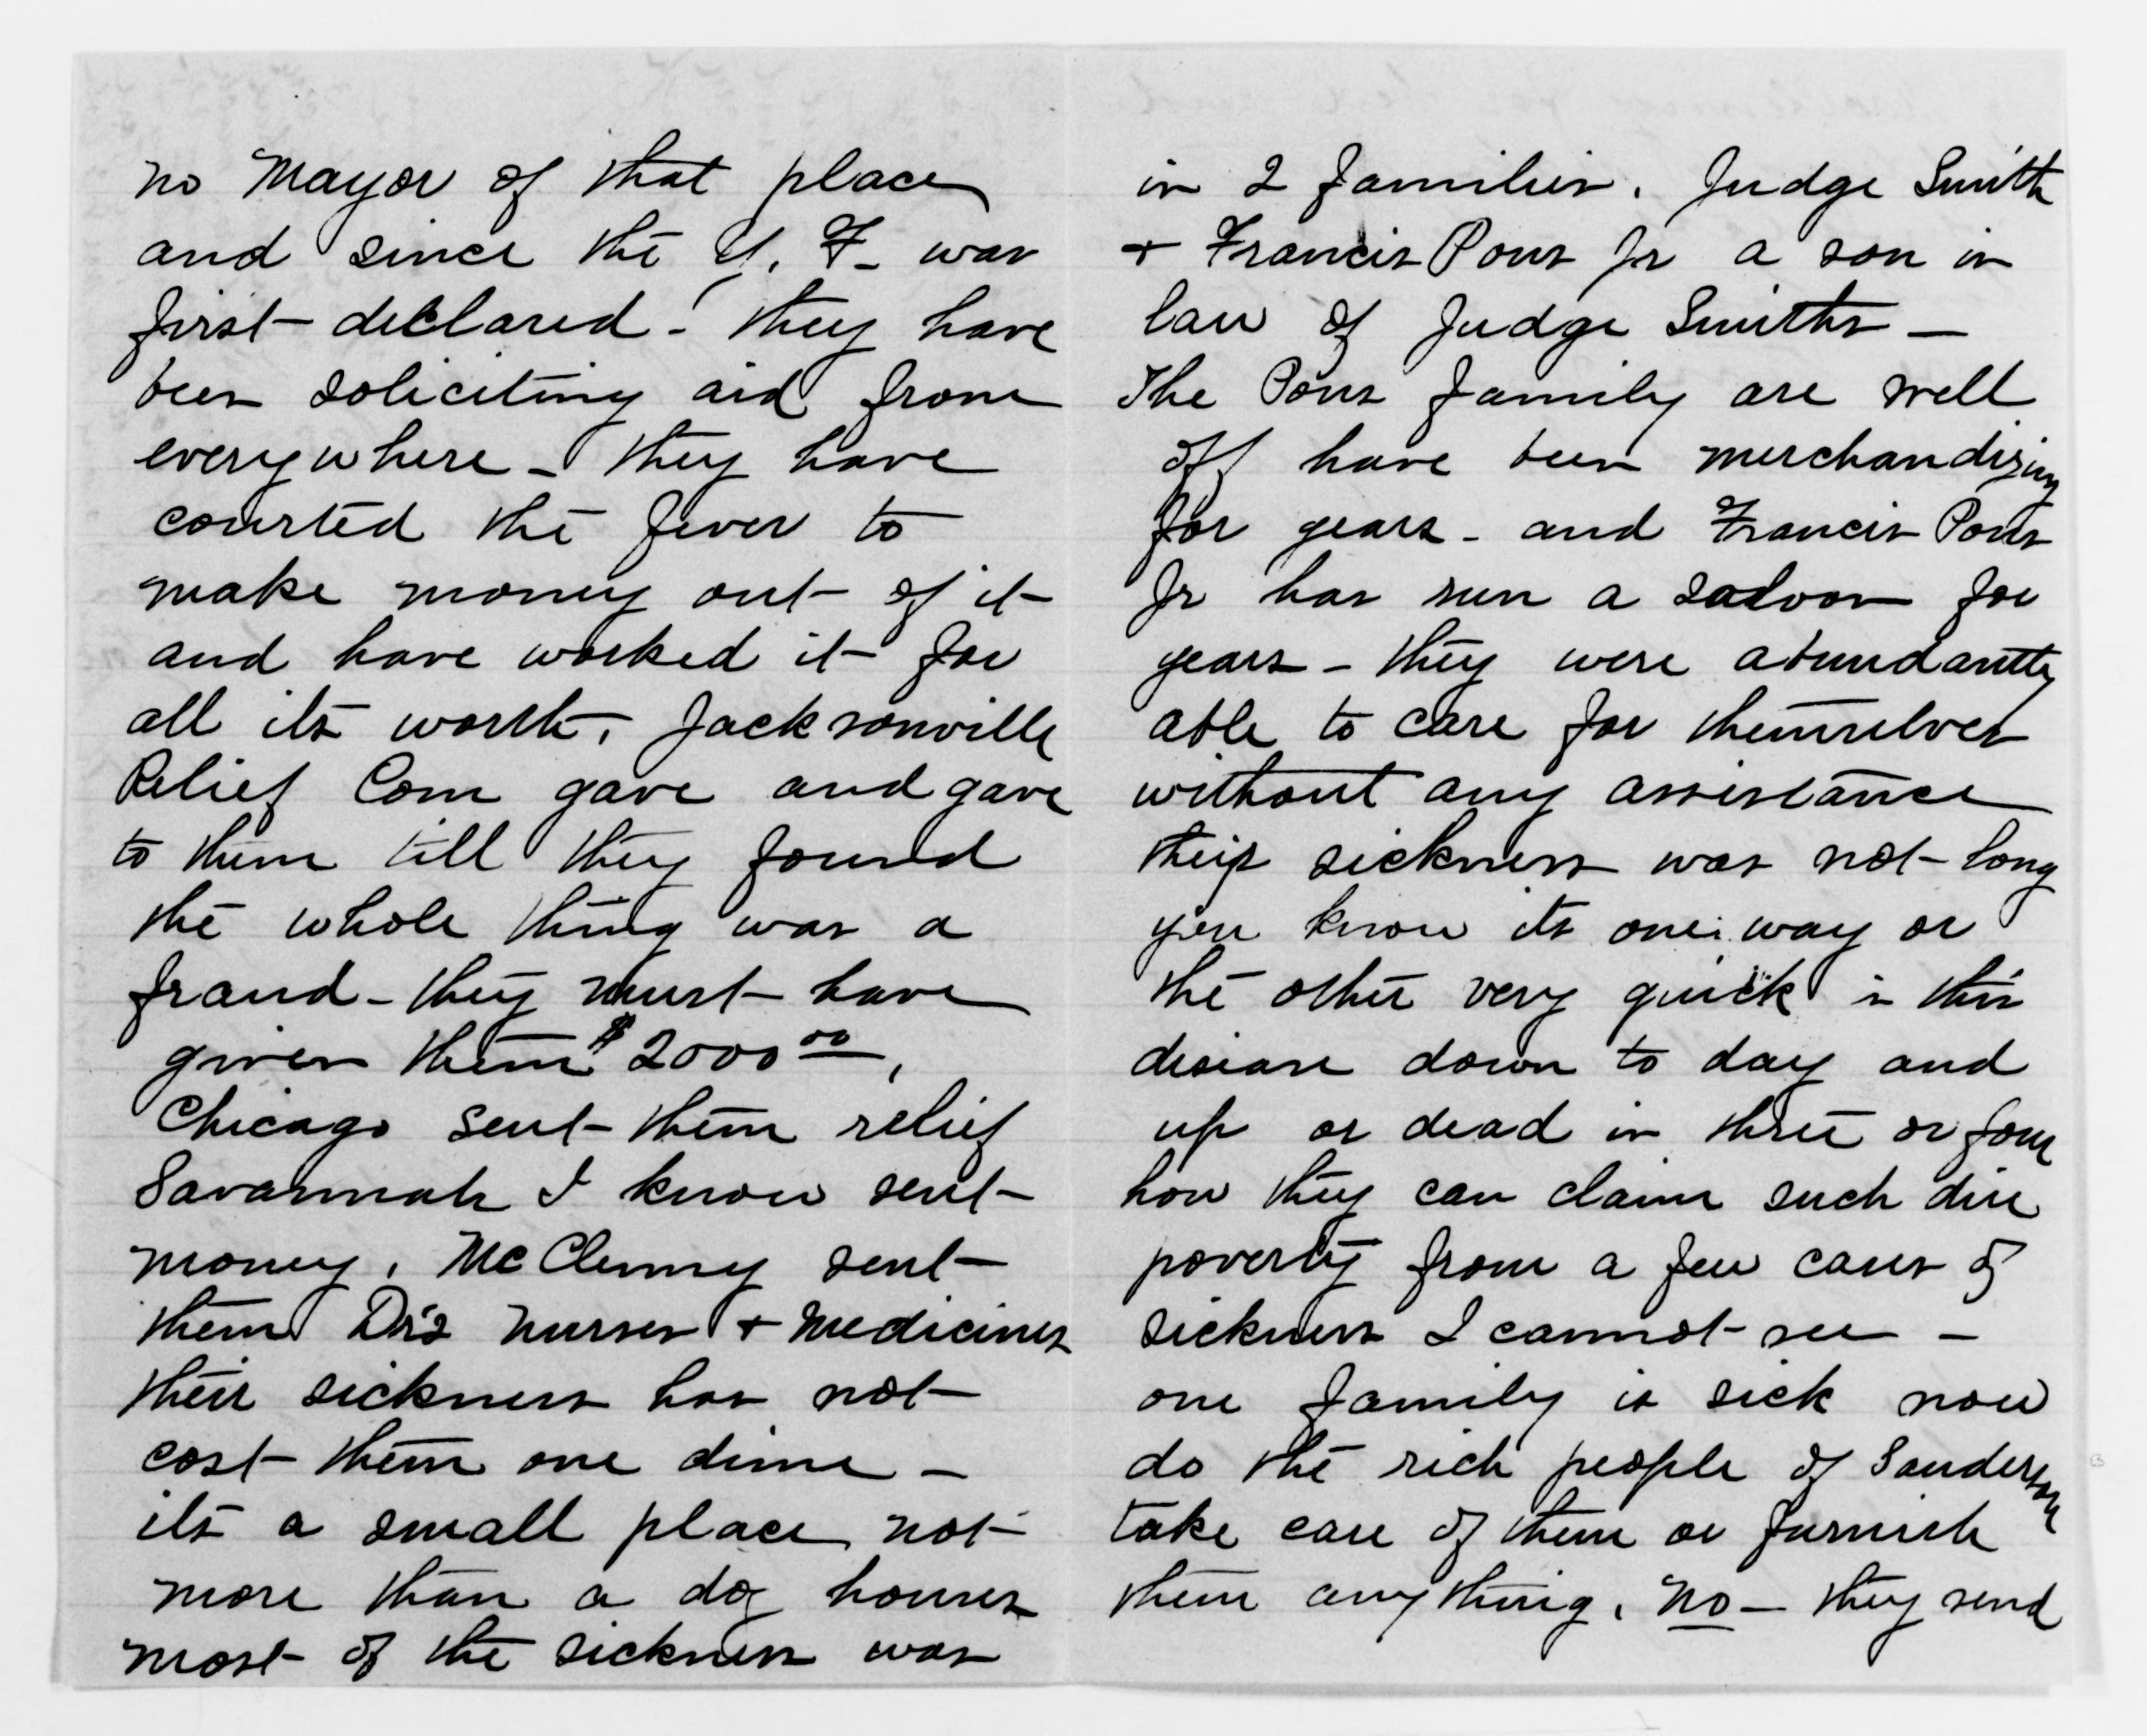 no Mayor of that place
and since the Y. F. was
first declared - they have
been soliciting aid from
everywhere - they have
courted the fever to
make money out of it
and have worked it for
all its worth. Jacksonville
Relief Com gave and gave
to them till they found
the whole thing was a
fraud - they must have
given them $2000.00,
Chicago sent them relief
Savannah I know sent
money, McClenny sent
them Dr's nurses + medicines
their sickness has not
cost them one dime -
its a small place not
more than a doz houses
most of the sickness was
in 2 families. Judge Smith
+ Francis Pons Jr a son in
law of Judge Smiths -
The Pons family are well
off have been merchandizing
for years - and Francis Pons
Jr has run a saloon for
years - they were abundantly
able to care for themselves
without any assistance
their sickness was not long
you know its one way or
the other very quick in this
disease down to day and
up or dead in three or four
how they can claim such dire
poverty from a few cases of
sickness I cannot see -
one family is sick now
do the rich people of Sanderson
take care of them or furnish
them any thing. No - they send